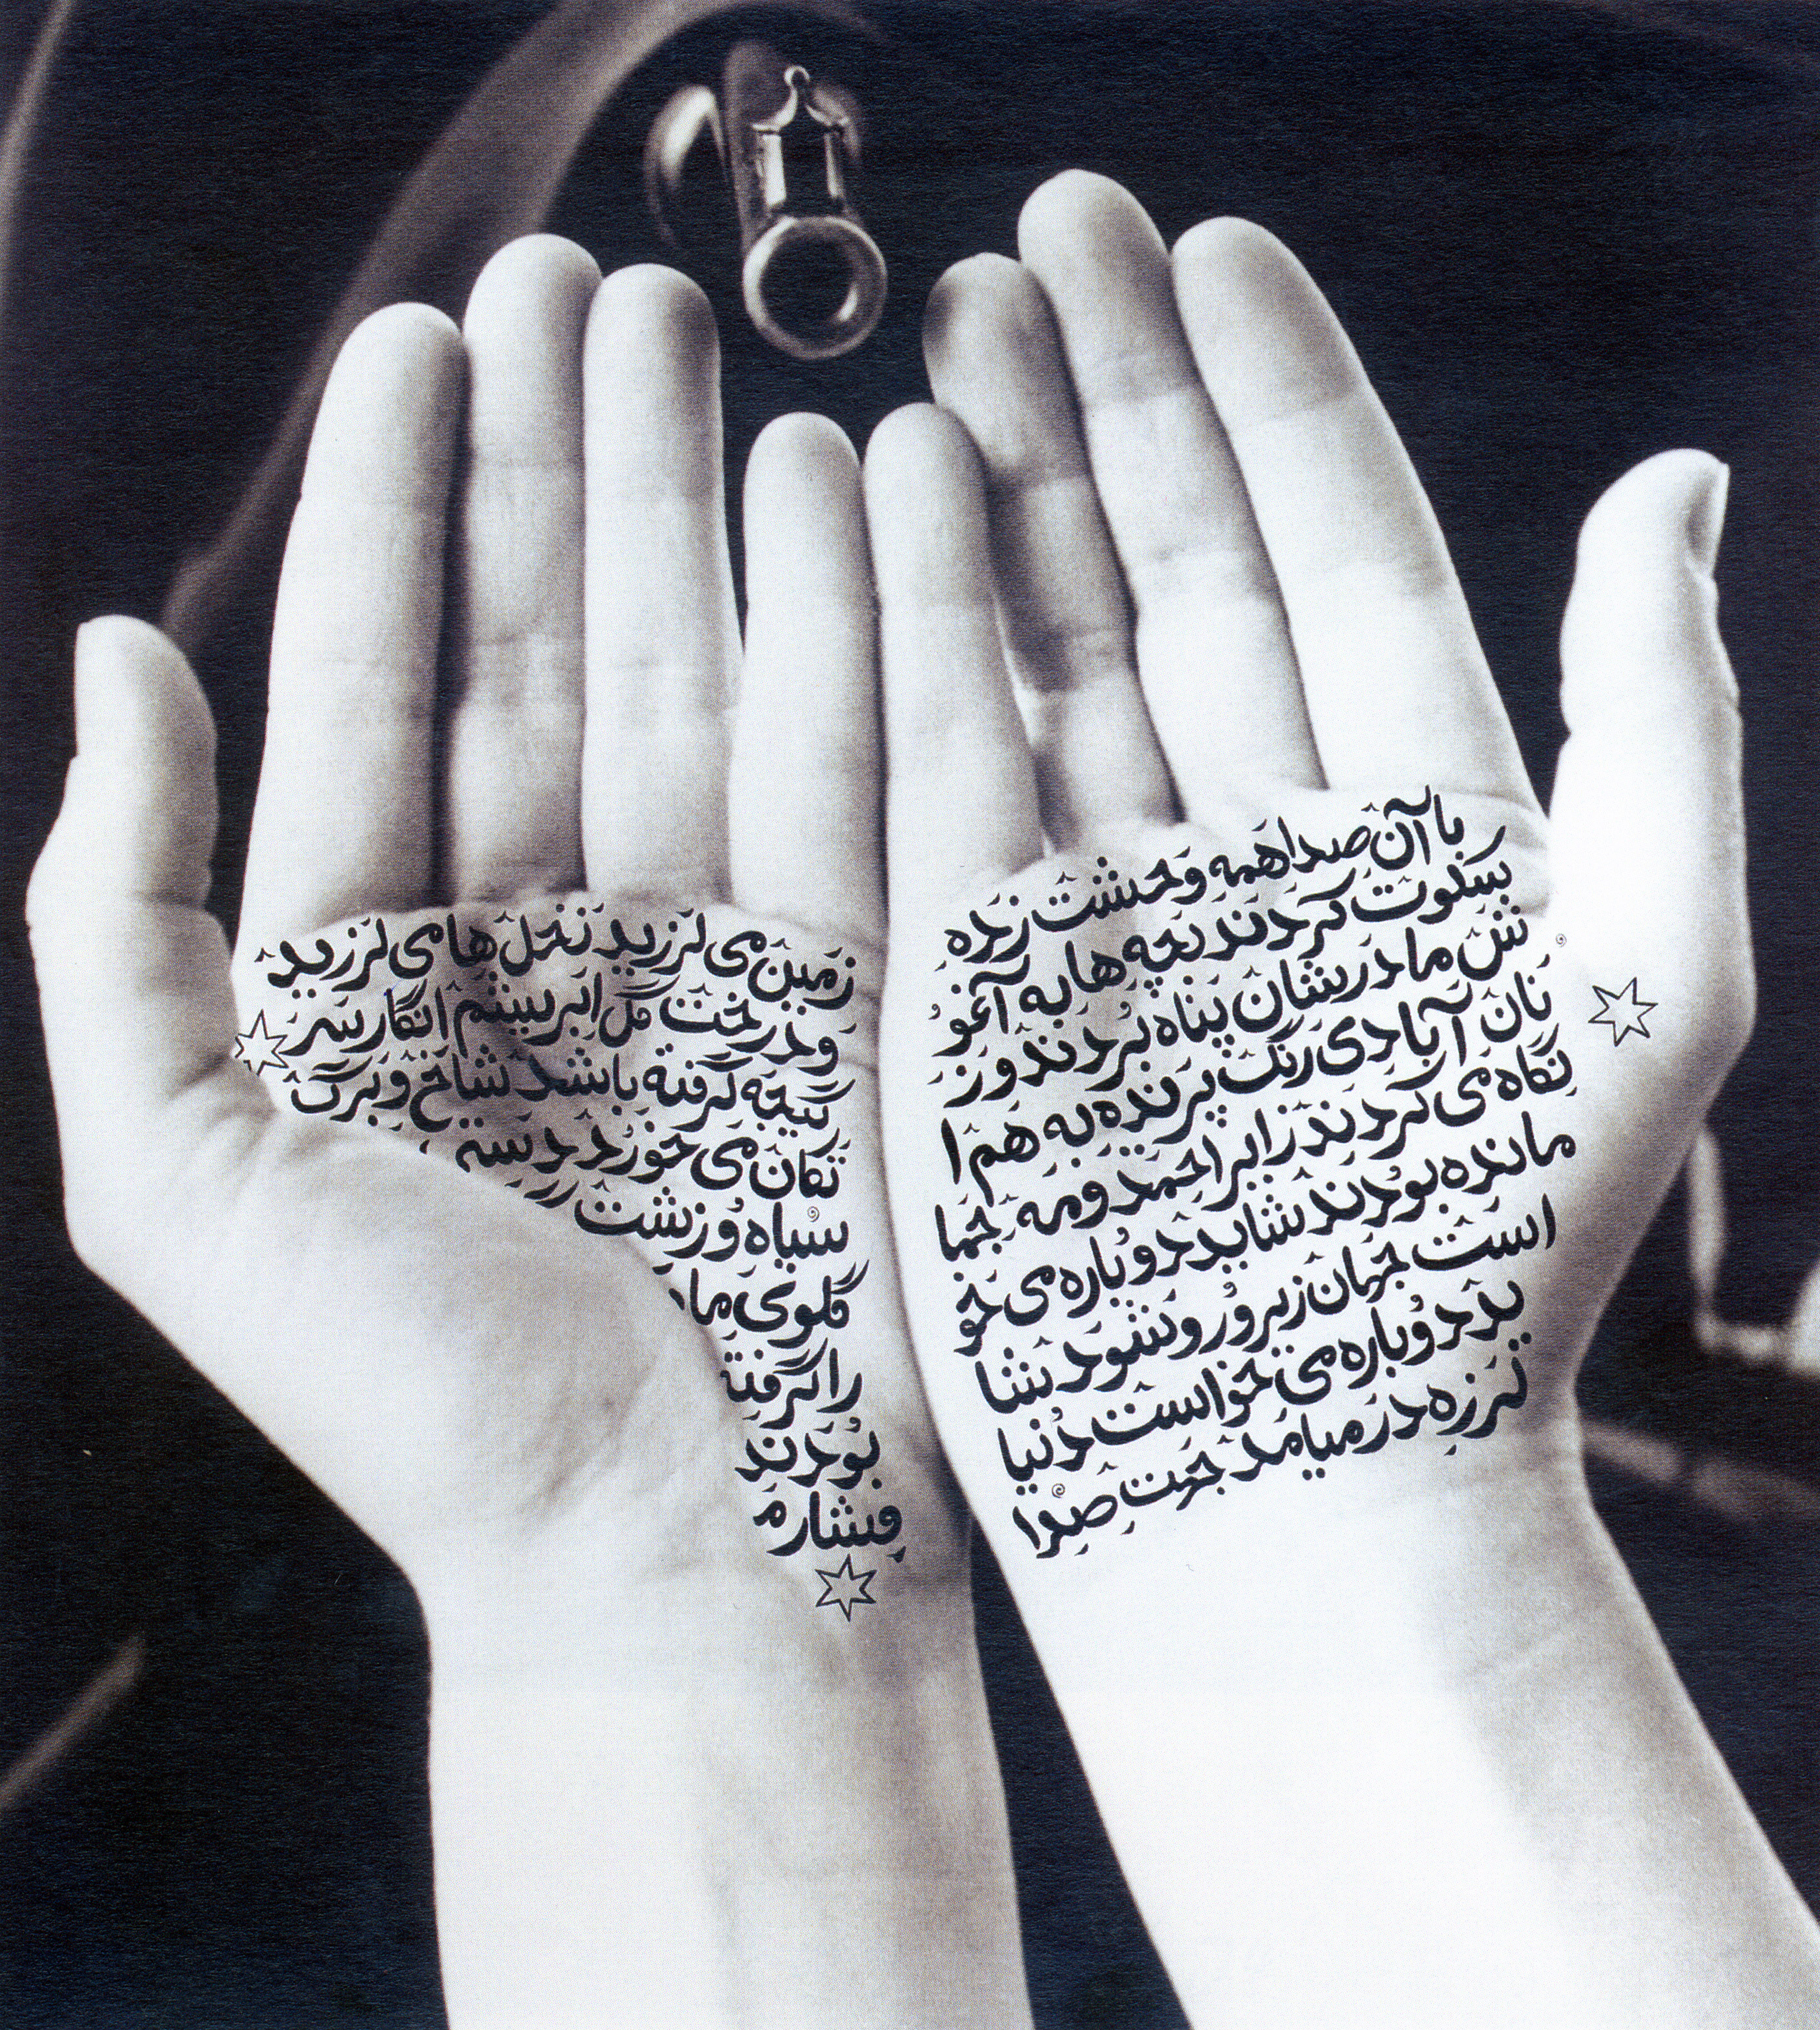 ر با آن صدا همه وحشت زده
سکوت کردند بچه ها به آغو
ش مادرشان پناه بردند و ز
نان آبادی رنگ پریده به هم ا
نگاه می کردند زایر احمد و مه جما
مانده بودند شاید دوباره می خو
است جهان زیر و رو شود شا
ید دوباره می خواست دنیا
لرزه در میامد جهت صدا
زمین می لرزید نخل ها می لرزید
و درخت گل ابریشم انگار سر
گیجه گرفته باشد شاخ و برگ
تکان می خورد
سیاه و زشت
گلوی ما
را گرفته
بودند
فشار م